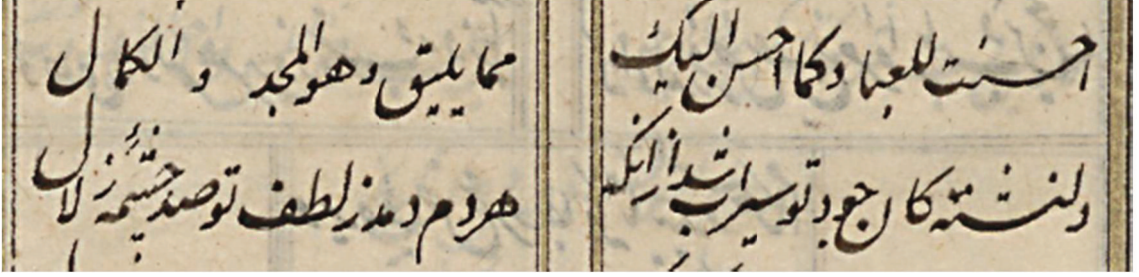 احسنت للعباد کما احسن الیک
مما یلیق وهو المجد و الکمال
دلتشنه کان جود تو سیراب شد ازانکه
هردم دمد ز لطف تو صد چشمهٔ زلال